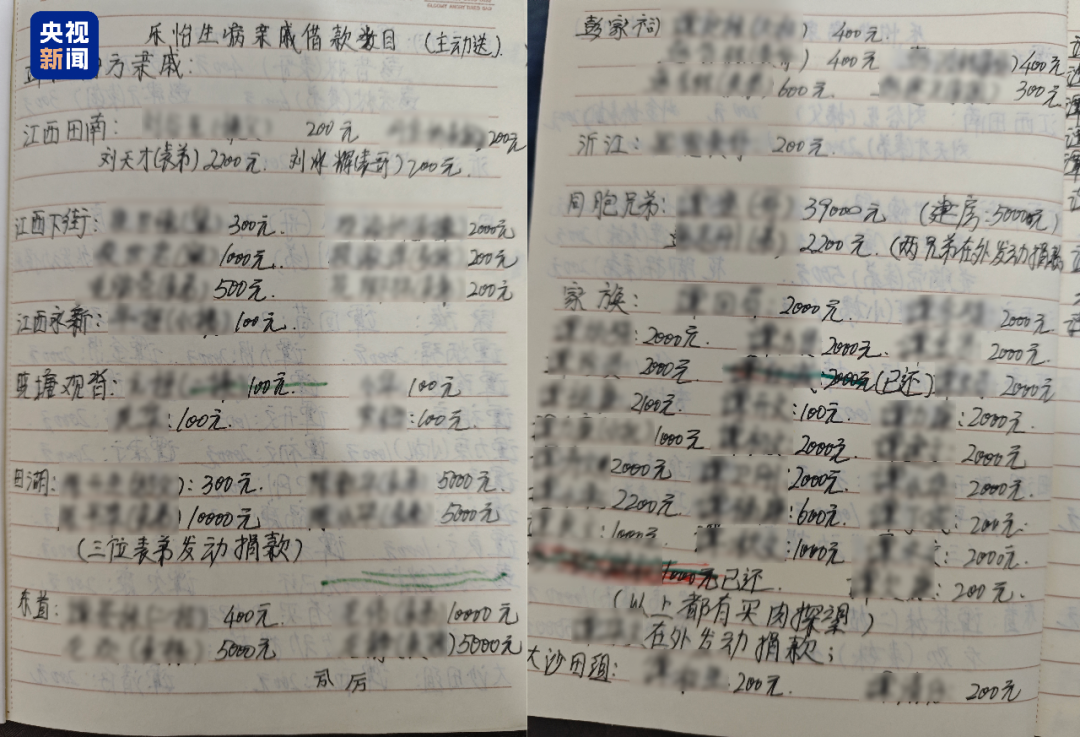 央视新闻
乐怡生病亲戚借款数目 (主动送).
方亲戚:
江西田南: 200元 200元
刘天才(表弟) 2200元. 刘冰辉(表哥) 200元.
江西下街: 300元. 2000元
1000元. 200元
500元. 200元
江西永新: 100元.
100元 100元
:100元. :100元.
田湖: ): 300元. 5000元.
10000元 5000元
(三位表弟发动捐款)
东首: 400元 10000元
5000元 )5000元
彭家祠 ) 400元
) 400元 )400元
600元. 300元.
沂江: 200元.
同胞兄弟: 39000元 (建房:50000元)
2200元. (两兄弟在外发动捐款
家族: 2000元. 2000元
:2000元. 2000元. 2000元
2000元 2000元 (已还) 2000元
2100元. :100元. :2000元.
1000元 2000元. 2000元
2000元 :2000元. 2000元.
2200元. :600元. :200元.
:1000元 :1000元. :2000元.
1000元 已还. 200元.
(以上都有买肉探望)
在外发动捐款;
大沙田组: 200元. 200元